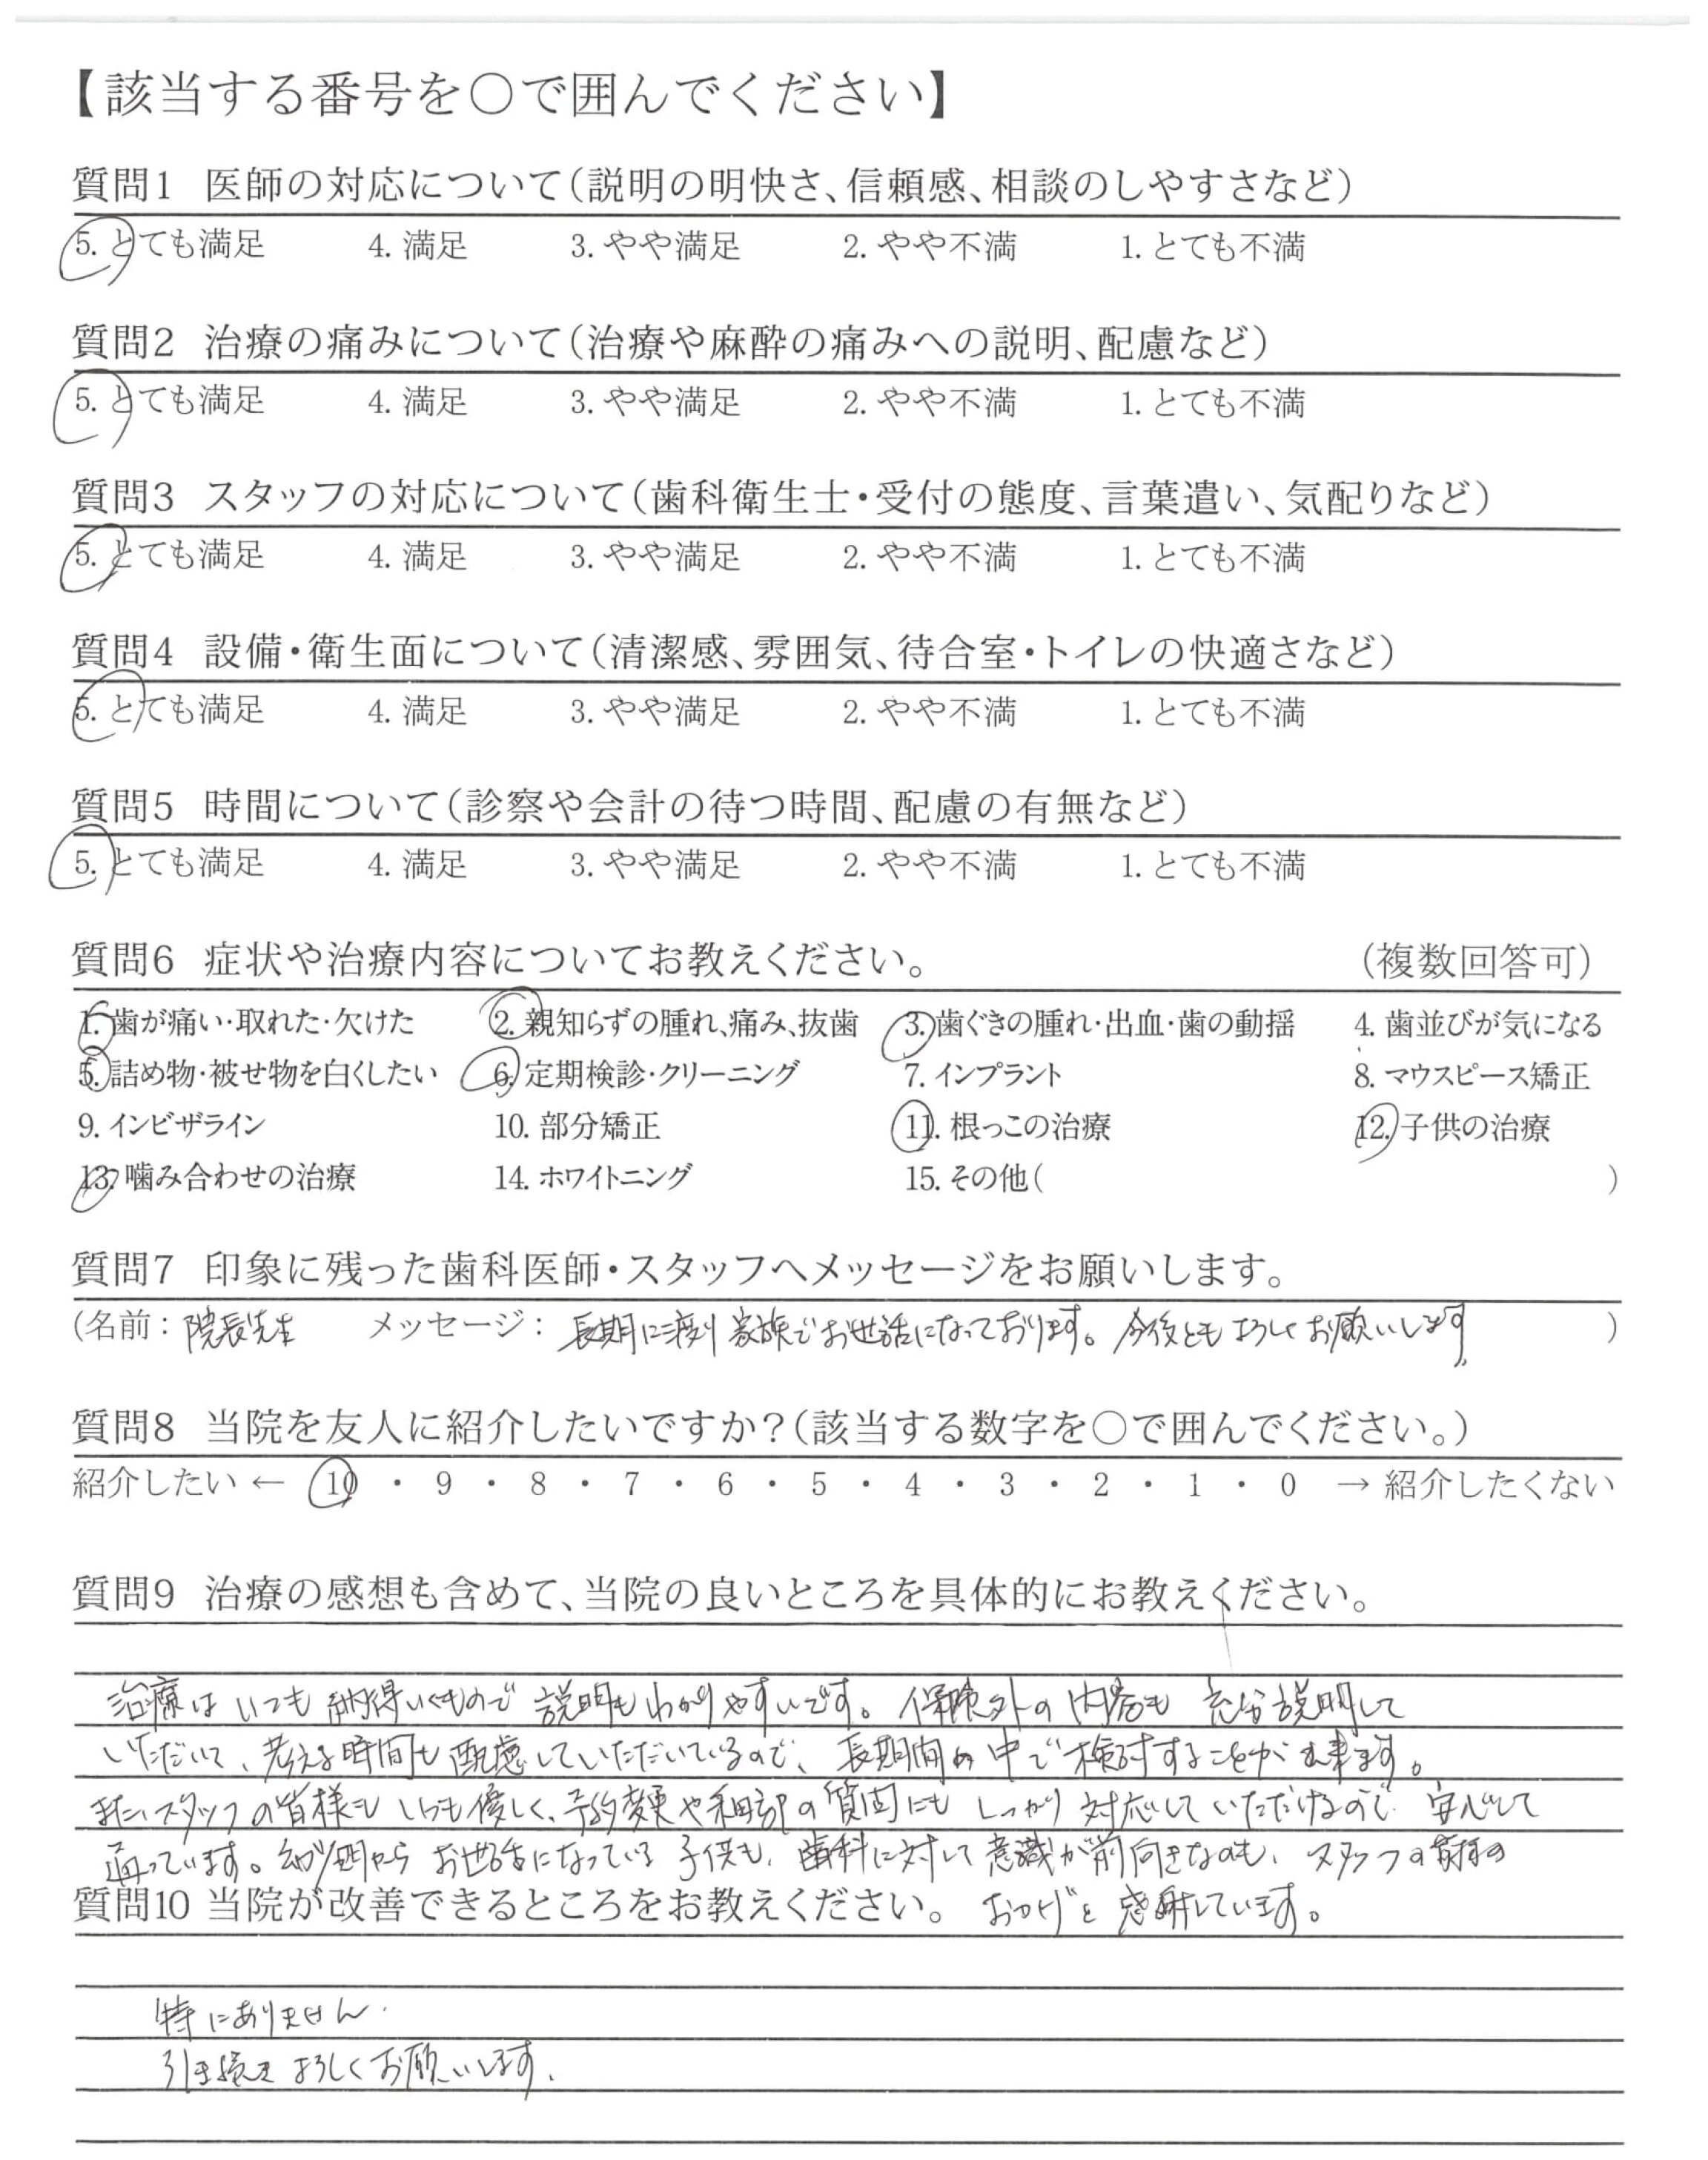 【該当する番号を○で囲んでください】
質問1 医師の対応について(説明の明快さ、信頼感、相談のしやすさなど)
5. とても満足 4. 満足 3. やや満足 2. やや不満 1. とても不満
質問2 治療の痛みについて(治療や麻酔の痛みへの説明、配慮など)
5. とても満足 4. 満足 3. やや満足 2. やや不満 1. とても不満
質問3 スタッフの対応について(歯科衛生士・受付の態度、言葉遣い、気配りなど)
5. とても満足 4. 満足 3. やや満足 2. やや不満 1. とても不満
質問4 設備・衛生面について(清潔感、雰囲気、待合室・トイレの快適さなど)
5. とても満足 4. 満足 3. やや満足 2. やや不満 1. とても不満
質問5 時間について(診察や会計の待つ時間、配慮の有無など)
5. とても満足 4. 満足 3. やや満足 2. やや不満 1. とても不満
質問6 症状や治療内容についてお教えください。 (複数回答可)
1. 歯が痛い・取れた・欠けた 2. 親知らずの腫れ、痛み、抜歯 3. 歯ぐきの腫れ・出血・歯の動揺 4. 歯並びが気になる
5. 詰め物・被せ物を白くしたい 6. 定期検診・クリーニング 7. インプラント 8. マウスピース矯正
9. インビザライン 10. 部分矯正 11. 根っこの治療 12. 子供の治療
13. 噛み合わせの治療 14. ホワイトニング 15. その他( )
質問7 印象に残った歯科医師・スタッフへメッセージをお願いします。
(名前: 院長先生 メッセージ: 長期に渡り 家族でお世話になっております。今後ともよろしくお願いします。 )
質問8 当院を友人に紹介したいですか?(該当する数字を○で囲んでください。)
紹介したい ← 10 ・ 9 ・ 8 ・ 7 ・ 6 ・ 5 ・ 4 ・ 3 ・ 2 ・ 1 ・ 0 → 紹介したくない
質問9 治療の感想も含めて、当院の良いところを具体的にお教えください。
治療は いつも 納得いくもので 説明も わかりやすいです。保険外の 内容も 充分説明して
いただいて、考える時間も 配慮していただいているので、長期間の 中で 検討することが出来ます。
また、スタッフの皆様も いつも優しく、予約変更や細部の質問にも しっかり 対応して いただけるので 安心して
通っています。幼少期から お世話になっている 子供も、歯科に対して 意識が前向きなのも、スタッフの皆様の
おかげと 感謝しています。
質問10 当院が改善できるところをお教えください。
特にありません.
引き続き よろしくお願いします.